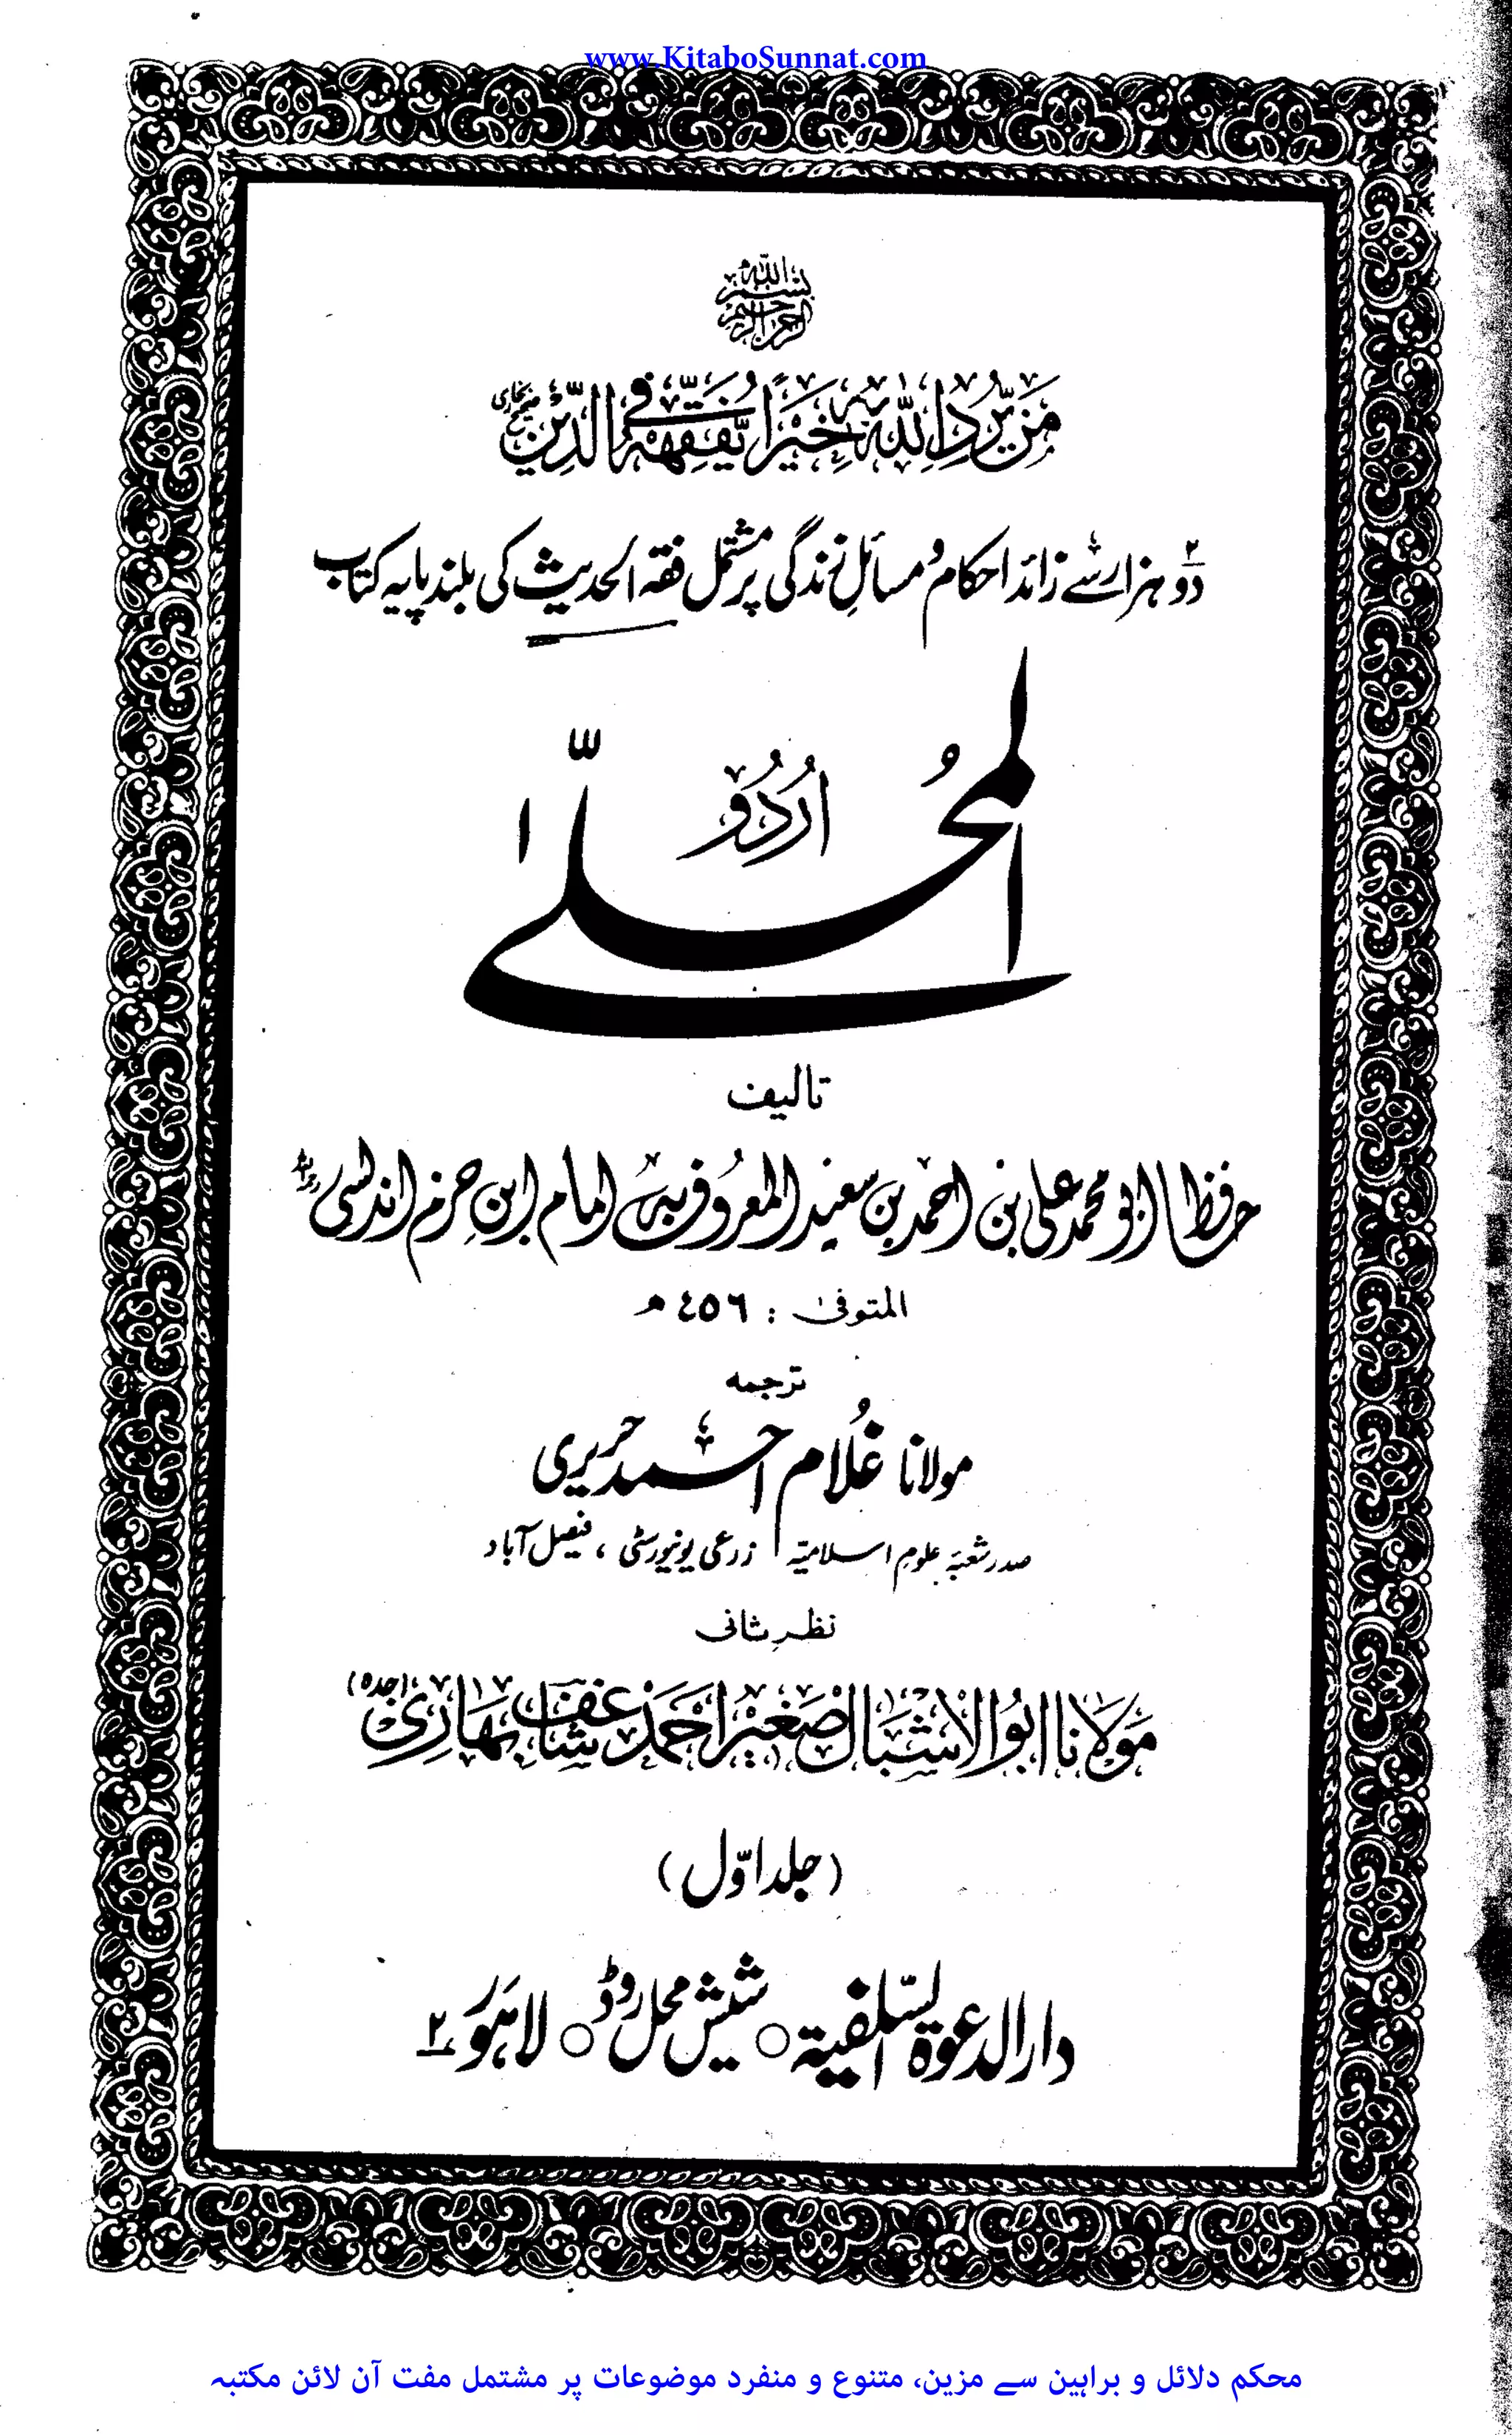 www.KitaboSunnat.com
بسم الله الرحمن الرحيم
مَنْ يُّرِدِ اللّٰهُ بِهٖ خَيْرًا يُّفَقِّهْهُ فِي الدِّيْنِ صحیح بخاری
دو ۲ ہزار سے زائد احکام و مسائلِ زندگی پر مشتمل فقہ الحدیث کی بلند پایہ کتاب
المُحلّٰی
اُردُو
تالیف
حافظ ابو محمد علی بن احمد بن سعید المعروف بہ امام ابن حزم اندلسی
المتوفیٰ : ٤٥٦ ھ
ترجمہ
مولانا غُلام احمد حریری
صدر شعبۂ علوم اسلامیّہ زرعی یونیورسٹی ، فیصل آباد
نظرِ ثانی
مَولانا ابُو الاشبَال صَغیر احمَد شَاغِف بِهَاری (جدہ)
(جلد اوّل)
دار الدعوۃ السّلفیۃ ○ شیش محل روڈ ○ لاہور ۲
محکم دلائل و براہین سے مزین، متنوع و منفرد موضوعات پر مشتمل مفت آن لائن مکتبہ